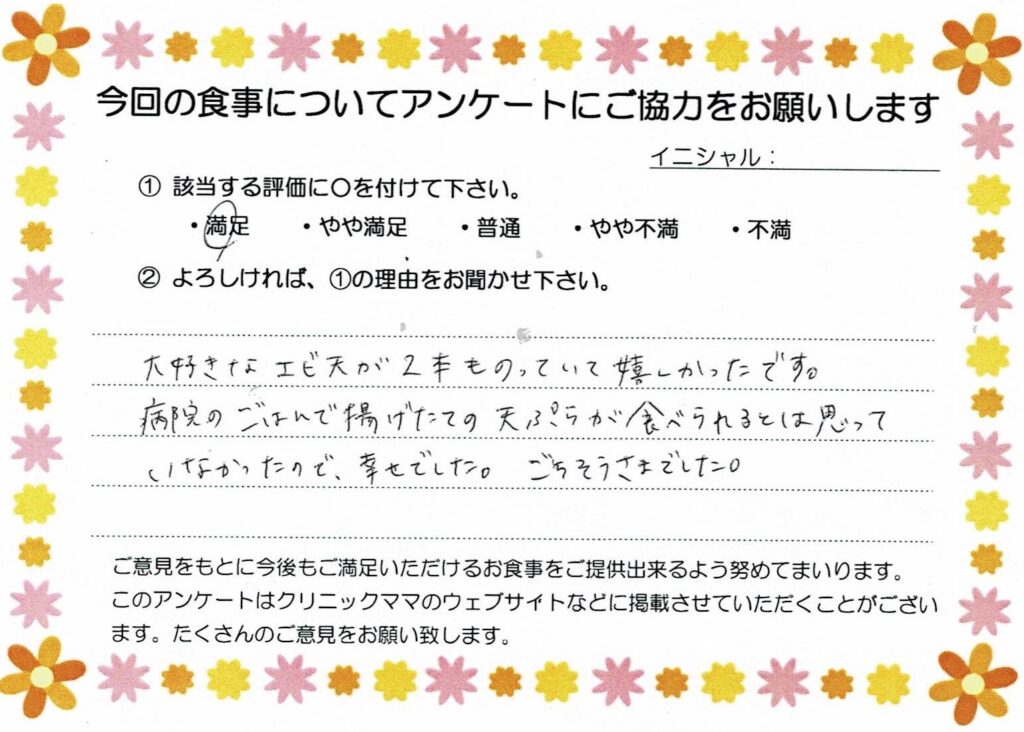 今回の食事についてアンケートにご協力をお願いします
イニシャル：
① 該当する評価に〇を付けて下さい。
・満足 ・やや満足 ・普通 ・やや不満 ・不満
② よろしければ、①の理由をお聞かせ下さい。
大好きなエビ天が2本ものっていて嬉しかったです。
病院のごはんで揚げたての天ぷらが食べられるとは思って
いなかったので、幸せでした。 ごちそうさまでした。
ご意見をもとに今後もご満足いただけるお食事をご提供出来るよう努めてまいります。
このアンケートはクリニックママのウェブサイトなどに掲載させていただくことがござい
ます。たくさんのご意見をお願い致します。